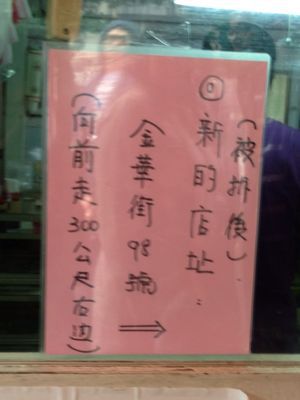 (被拆後)
◎新的店址:
金華街98號⇒
(向前走300公尺右边)